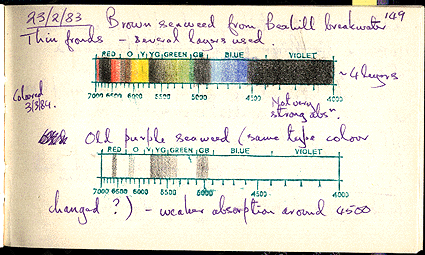 23/2/83 Brown seaweed from Bexhill breakwater 149
Thin fronds - several layers used.
RED O Y YG GREEN GB BLUE VIOLET
7000 6500 6000 5500 5000 4500 4000
~4 layers
Coloured
3/3/84.
Not very
strong absⁿ.
Old purple seaweed (same type colour
RED O Y YG GREEN GB BLUE VIOLET
7000 6500 6000 5500 5000 4500 4000
changed?) - weaker absorption around 4500